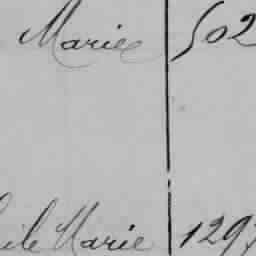 Marie 502
Marie 129